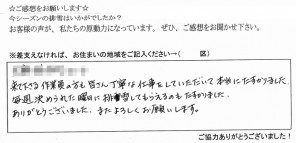 ☆ご感想をお願いします☆
今シーズンの排雪はいかがでしたか？
お客様の声が、私たちの原動力になっています。ぜひ、ご感想をお聞かせ下さい。
※差支えなければ、お住まいの地域をご記入ください→（　　　区）
来て下さる作業員の方も皆さん丁寧な仕事をしていただいて本当にたすかりました。
毎週決められた曜日に排雪してもらえるのもたすかりました。
ありがとうございました。またよろしくお願いします。
ご協力ありがとうございました！